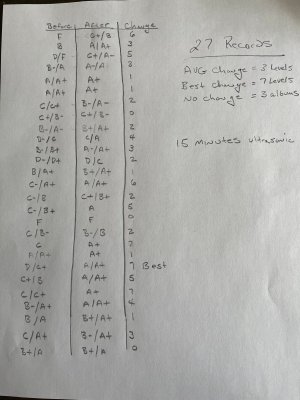 Before After Change
F C+/B 6
B A/A+ 3
D/F C+/A- 5
B-/A A-/A 3
A/A+ A+ 1
A/A+ A+ 1
C/C+ B-/A- 2
C+/B- C+/B- 0
B-/A- B+/A+ 2
D-/C C/A 4
B-/B+ A-/A+ 3
D-/D+ D/C 2
B/A+ B+/A+ 1
C-/A+ A/A+ 6
C-/B C+/B+ 2
C-/B+ A 5
F F 0
C/B- B-/B 2
C A+ 7
A/A+ A+ 1
D/C+ A/A+ 7 Best
C+/B A/A+ 5
C/C+ A+ 7
B-/A+ A/A+ 4
B/A B+/A+ 1
C/A+ B-/A+ 3
B+/A B+/A 0
27 Records
AVG Change = 3 Levels
Best change = 7 Levels
No change = 3 albums
15 minutes ultrasonic